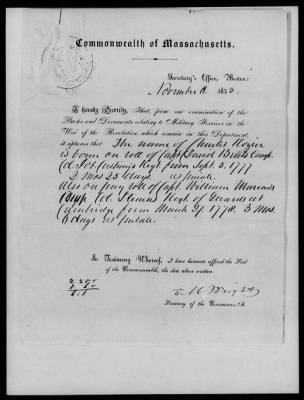 Commonwealth of Massachusetts.
Secretary's Office, Boston:
November 18
I hereby Certify, That, from an examination of the
Books and Documents relating to Military Services in the
War of the Revolution, which remain in this Department,
it appears that The name of Charles Hozier
is borne on roll of Capt Comp
Col Job Cushing's Regt from Sept 5. 1777
2 Mos 25 days. as private.
Also on pay roll of Capt. William
Comp Col. Regt of Guards at
Cambridge from March 1778. 3 Mos.
days as private.
In Testimony Whereof, I have hereunto affixed the Seal
of the Commonwealth, the date above written.
Secretary of the Commonwealth.